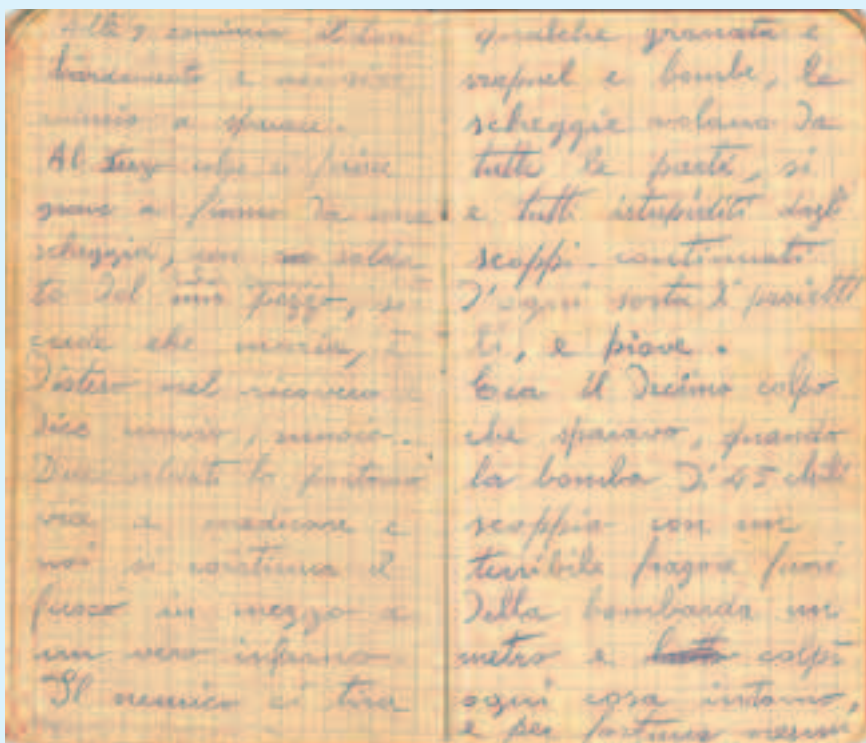 Alle 7 comincia il bom
bardamento e noi si co
mincia a sparare.
Al terzo colpo ci
grave a da una
scheggia, un solda
to del mio pezzo, si
crede che muoia, È
disteso nel ricovero e
dice muoio, muoio.
Due soldati lo portano
via a medicare e
noi si continua il
fuoco in mezzo a
un vero inferno.
Il nemico ci tira
qualche granata e
srapnel e bombe, le
scheggie volano da
tutte le parti, si
e tutti istupiditi dagli
scoppi continuati
d'ogni sorta di proietti
li, e piove.
Era il decimo colpo
che sparavo, quando
la bomba di 45 chili
scoppia con un
terribile fragore fuori
della bombarda un
metro e colpì
ogni cosa intorno,
e per fortuna nessun